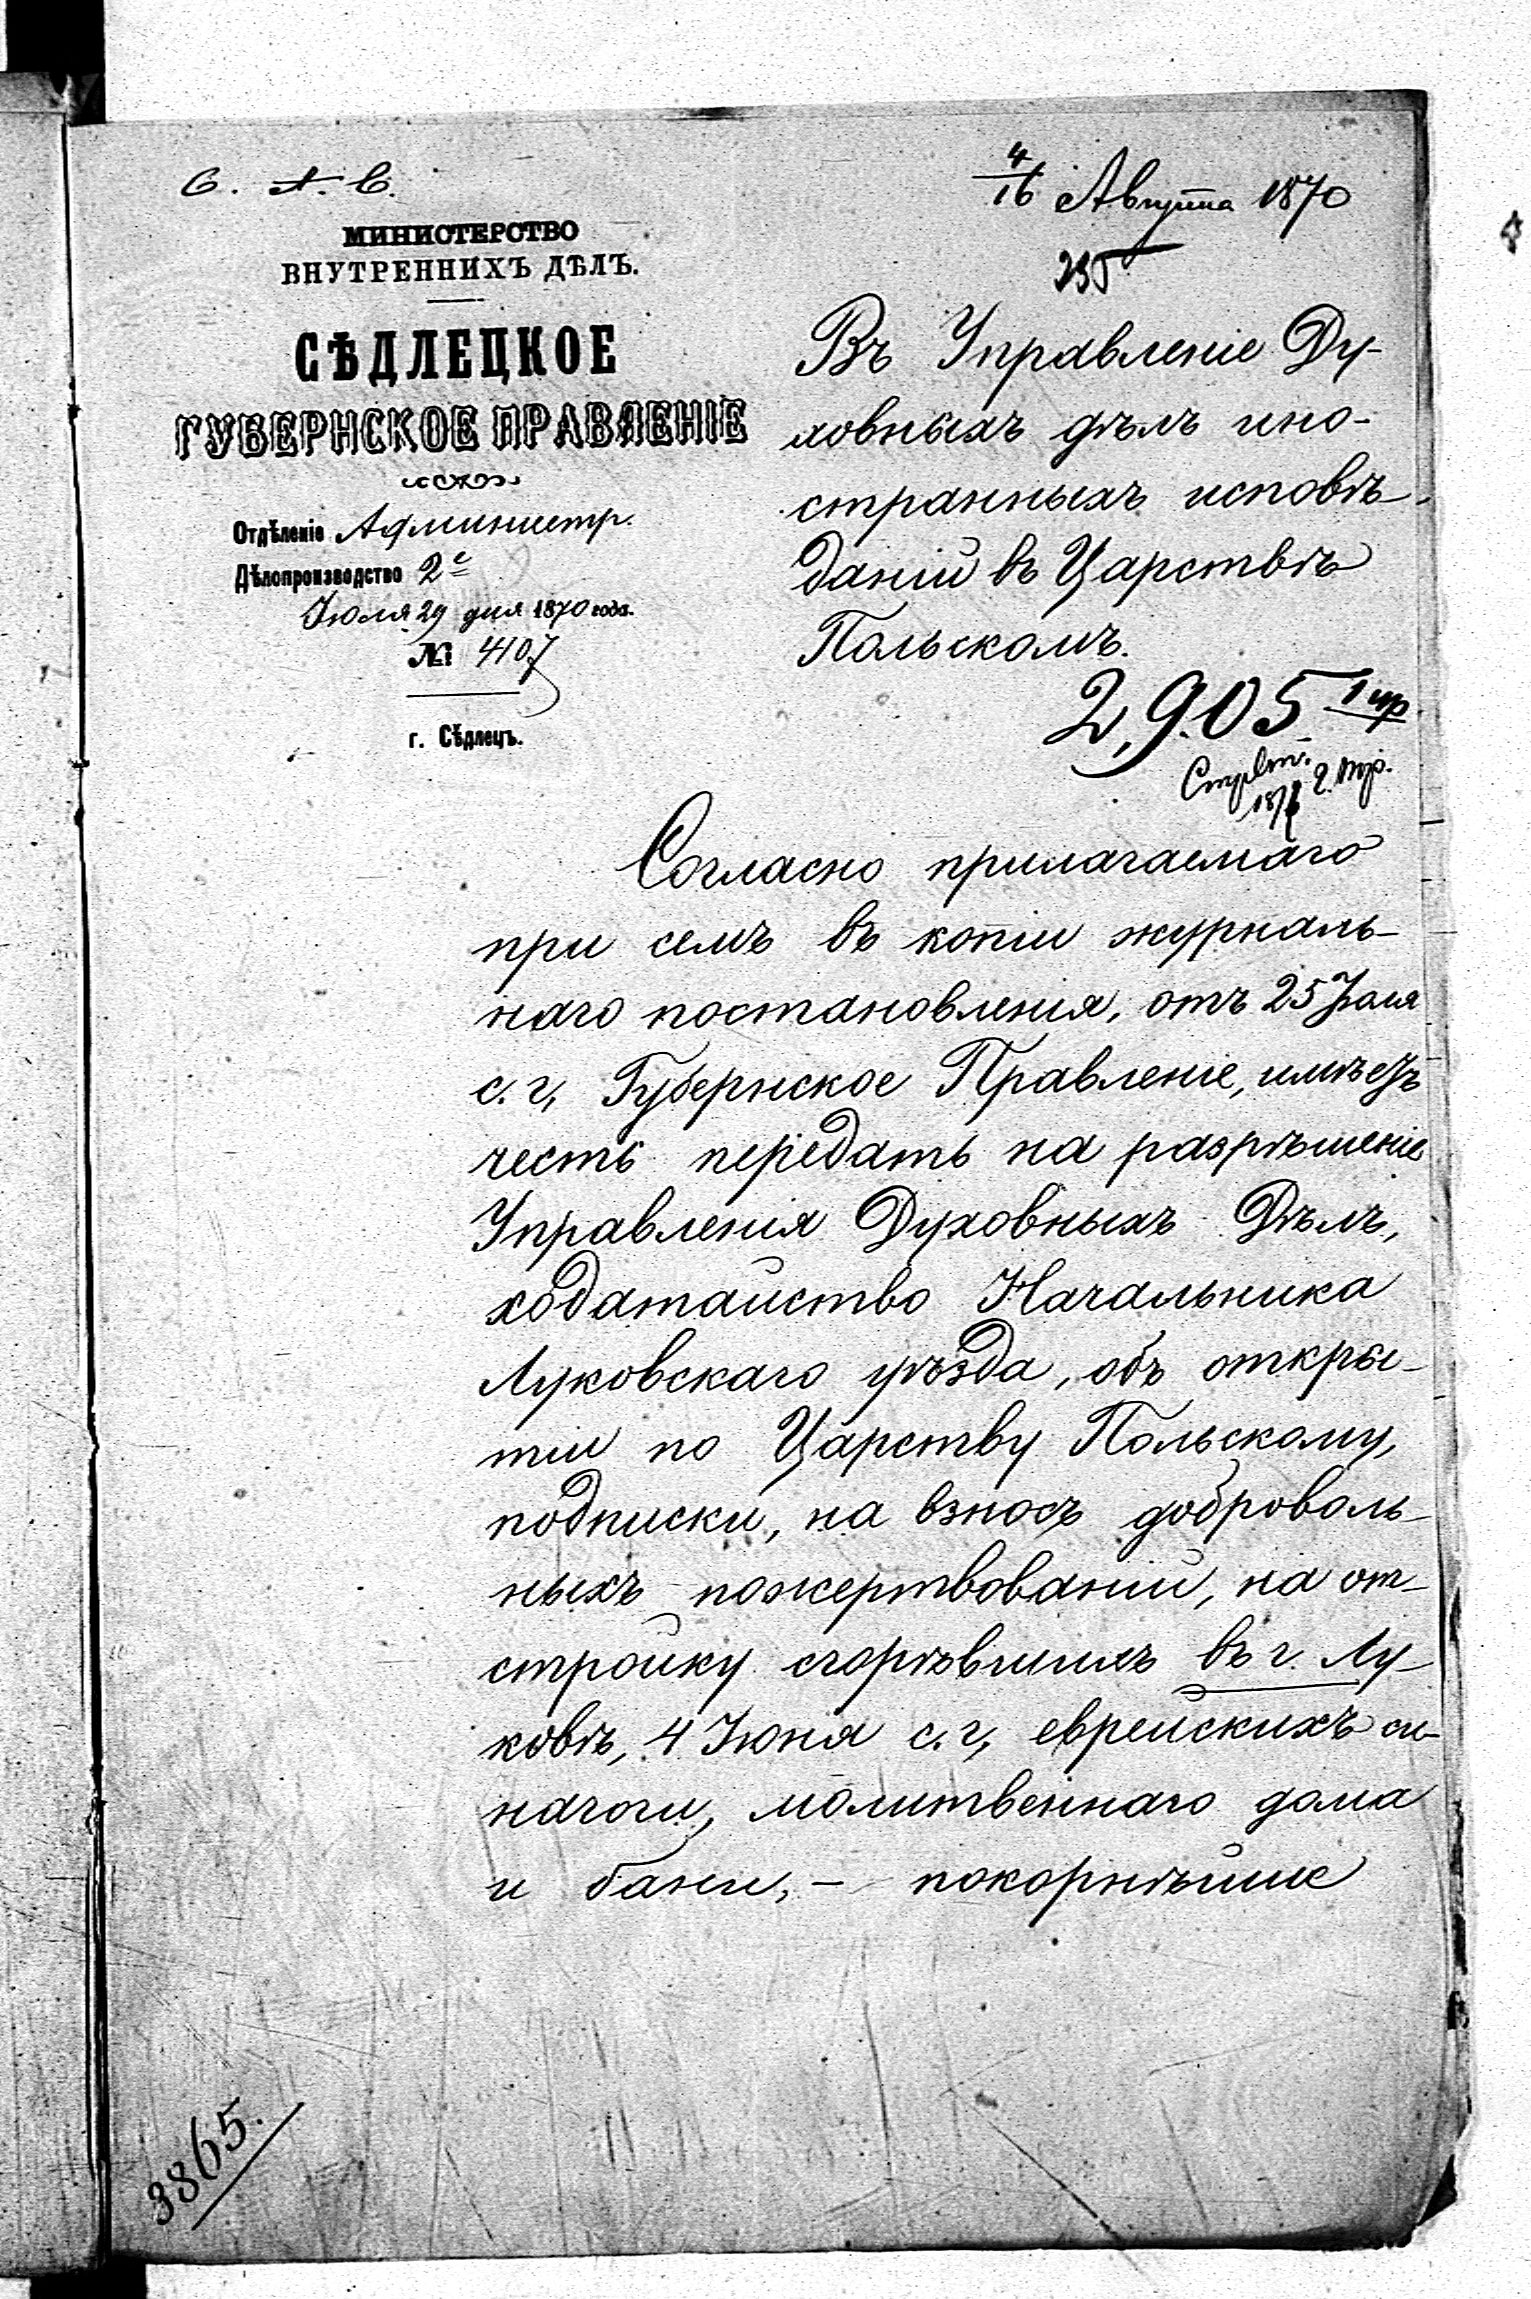 С. А. В.
МИНИСТЕРСТВО
ВНУТРЕННИХЪ ДѢЛЪ.
СѢДЛЕЦКОЕ
ГУБЕРНСКОЕ ПРАВЛЕНІЕ
Отдѣленіе Администр.
Дѣлопроизводство 2е
Іюля 29 дня 1870 года.
№ 4107
г. Сѣдлецъ.
4/16 Августа 1870
235
Въ Управленіе Ду-
ховныхъ дѣлъ ино-
странныхъ исповѣ-
даній въ Царствѣ
Польскомъ.
2,905
Согласно прилагаемаго
при семъ въ копіи журналь-
наго постановленія, отъ 25 Іюля
с. г., Губернское Правленіе, имѣетъ
честь передать на разрѣшеніе
Управленія Духовныхъ Дѣлъ,
ходатайство Начальника
Луковскаго уѣзда, объ откры-
тіи по Царству Польскому,
подписки, на взносъ доброволь-
ныхъ пожертвованій, на от-
стройку сгорѣвшихъ въ г. Лу-
ковѣ, 4 Іюня с. г., еврейскихъ си-
нагоги, молитвеннаго дома
и бани, – покорнѣйше
3865.